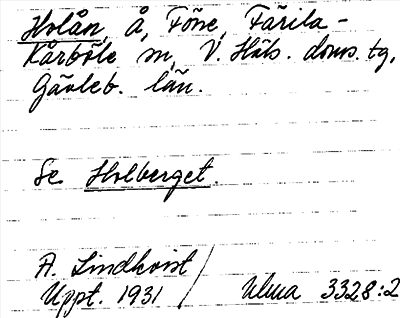 Holån, å, Föne, Färila-
Kårböle sn, V. Häls. doms. tg,
Gävleb. län.
Se Holberget.
A. Lindkvist /
Uppt. 1931 / Ulma 3328:2